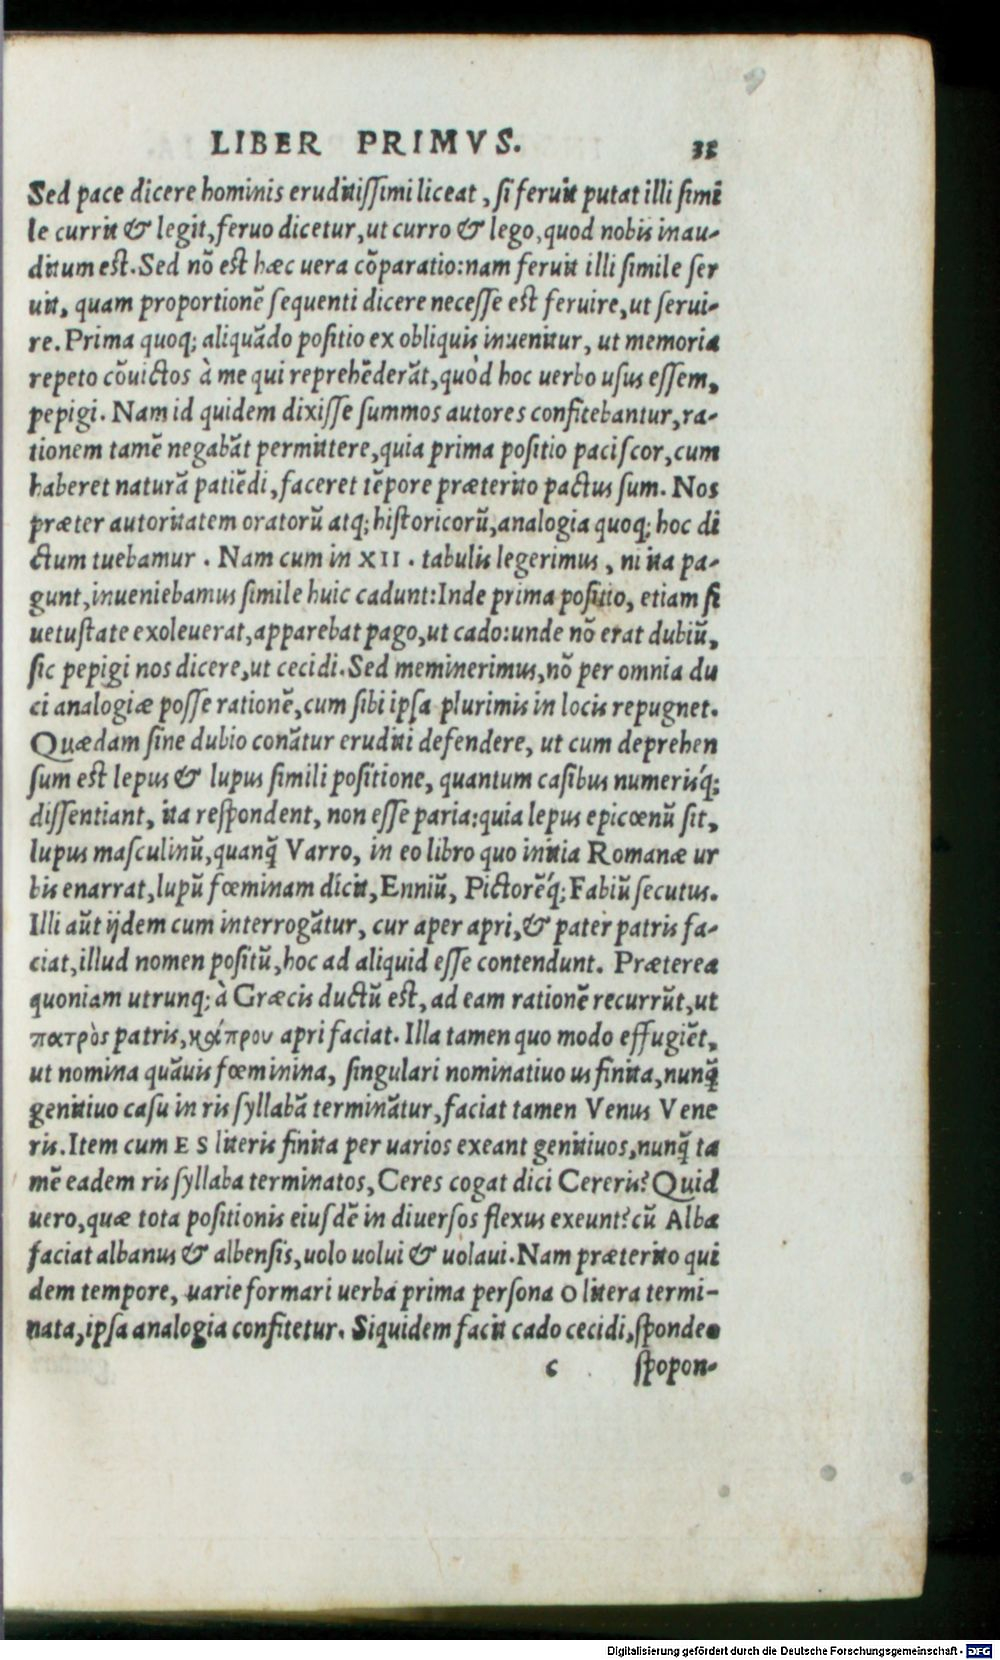 LIBER PRIMVS. 33
Sed pace dicere hominis eruditissimi liceat, si feruit putat illi simi
le currit & legit, feruo dicetur, ut curro & lego, quod nobis inau-
ditum est. Sed nõ est hæc uera cõparatio: nam feruit illi simile ser
uit, quam proportionẽ sequenti dicere necesse est feruire, ut serui-
re. Prima quoq; aliquãdo positio ex obliquis inuenitur, ut memoria
repeto cõuictos à me qui reprehẽderãt, quòd hoc uerbo usus essem,
pepigi. Nam id quidem dixisse summos autores confitebantur, ra-
tionem tamẽ negabãt permittere, quia prima positio paciscor, cum
haberet naturã patiẽdi, faceret tẽpore præterito pactus sum. Nos
præter autoritatem oratorũ atq; historicorũ, analogia quoq; hoc di
ctum tuebamur. Nam cum in XII. tabulis legerimus, ni ita pa-
gunt, inueniebamus simile huic cadunt: Inde prima positio, etiam si
uetustate exoleuerat, apparebat pago, ut cado: unde nõ erat dubiũ,
sic pepigi nos dicere, ut cecidi. Sed meminerimus, nõ per omnia du
ci analogiæ posse rationẽ, cum sibi ipsa plurimis in locis repugnet.
Quædam sine dubio conãtur eruditi defendere, ut cum deprehen
sum est lepus & lupus simili positione, quantum casibus numerisq́;
dissentiant, ita respondent, non esse paria: quia lepus epicœnũ sit,
lupus masculinũ, quanq̃ Varro, in eo libro quo initia Romanæ ur
bis enarrat, lupũ fœminam dicit, Enniũ, Pictorẽq́; Fabiũ secutus.
Illi aũt ijdem cum interrogãtur, cur aper apri, & pater patris fa-
ciat, illud nomen positũ, hoc ad aliquid esse contendunt. Præterea
quoniam utrunq; à Græcis ductũ est, ad eam rationẽ recurrũt, ut
πατρὸς patris, κάπρου apri faciat. Illa tamen quo modo effugiẽt,
ut nomina quãuis fœminina, singulari nominatiuo us finita, nunq̃
genitiuo casu in ris syllabã terminãtur, faciat tamen Venus Vene
ris. Item cum ES literis finita per uarios exeant genitiuos, nunq̃ ta
mẽ eadem ris syllaba terminatos, Ceres cogat dici Cereris? Quid
uero, quæ tota positionis eiusdẽ in diuersos flexus exeunt? cũ Alba
faciat albanus & albensis, uolo uolui & uolaui. Nam præterito qui
dem tempore, uarie formari uerba prima persona O litera termi-
nata, ipsa analogia confitetur. Siquidem facit cado cecidi, spondeo
c spopon-
Digitalisierung gefördert durch die Deutsche Forschungsgemeinschaft - DFG